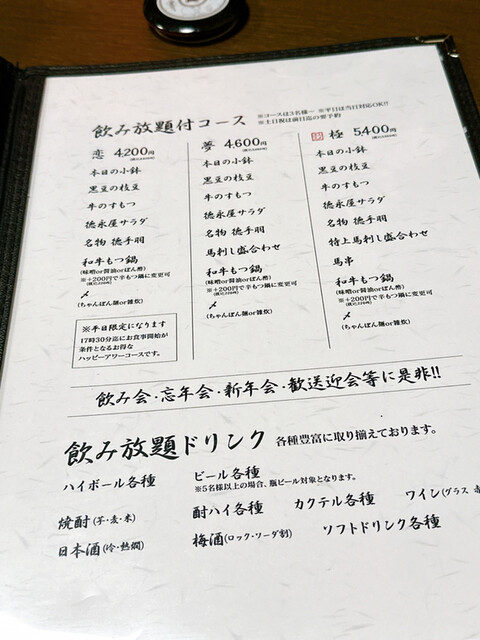 飲み放題付コース
※コースは3名様〜 ※平日は当日対応OK!!
※土日祝は前日迄の要予約
恋 4,200円
本日の小鉢
黒豆の枝豆
牛のすもつ
徳永屋サラダ
名物 徳手羽
和牛もつ鍋
(味噌or醤油orぽん酢)
※+200円で辛もつ鍋に変更可
〆
(ちゃんぽん麺or雑炊)
※平日限定になります
17時30分迄にお食事開始が
条件となるお得な
ハッピーアワーコースです。
夢 4,600円
本日の小鉢
黒豆の枝豆
牛のすもつ
徳永屋サラダ
名物 徳手羽
馬刺し盛合わせ
和牛もつ鍋
(味噌or醤油orぽん酢)
※+200円で辛もつ鍋に変更可
〆
(ちゃんぽん麺or雑炊)
極 5,400円
本日の小鉢
黒豆の枝豆
牛のすもつ
徳永屋サラダ
名物 徳手羽
特上馬刺し盛合わせ
馬串
和牛もつ鍋
(味噌or醤油orぽん酢)
※+200円で辛もつ鍋に変更可
〆
(ちゃんぽん麺or雑炊)
飲み会・忘年会・新年会・歓送迎会等に是非!!
飲み放題ドリンク 各種豊富に取り揃えております。
ハイボール各種 ビール各種
※5名様以上の場合、瓶ビール対象となります。
焼酎(芋・麦・米) 酎ハイ各種 カクテル各種 ワイン(グラス 赤
日本酒(冷・熱燗) 梅酒(ロック・ソーダ割) ソフトドリンク各種